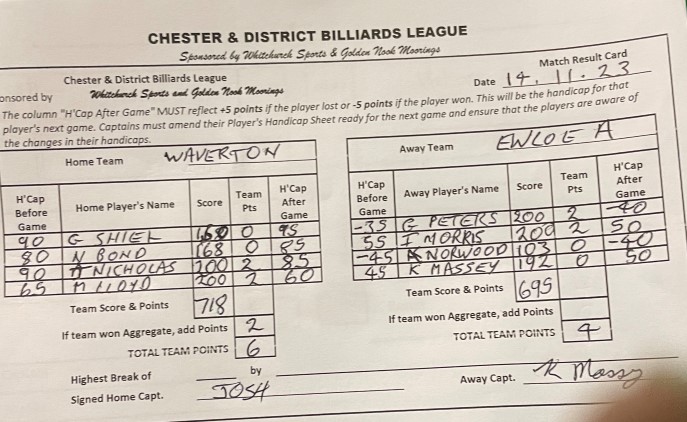 CHESTER & DISTRICT BILLIARDS LEAGUE
Sponsored by Whitchurch Sports & Golden Nook Moorings
Chester & District Billiards League
Match Result Card
onsored by Whitchurch Sports and Golden Nook Moorings
Date 14.11.23
The column "H'Cap After Game" MUST reflect +5 points if the player lost or -5 points if the player won. This will be the handicap for that
player's next game. Captains must amend their Player's Handicap Sheet ready for the next game and ensure that the players are aware of
the changes in their handicaps.
Home Team WAVERTON
H'Cap Before Game Home Player's Name Score Team Pts H'Cap After Game
90 G SHIEL 0 95
80 N BOND 168 0 85
90 A NICHOLAS 200 2 85
65 M LLOYD 200 2 60
Team Score & Points 718
If team won Aggregate, add Points 2
TOTAL TEAM POINTS 6
Highest Break of by
Signed Home Capt. JOSH
Away Team EWLOE A
H'Cap Before Game Away Player's Name Score Team Pts H'Cap After Game
-35 G PETERS 200 2 -40
55 I MORRIS 200 2 50
-45 A NORWOOD 103 0 -40
45 K MASSEY 192 0 50
Team Score & Points 695
If team won Aggregate, add Points
TOTAL TEAM POINTS 4
Away Capt. K Massy